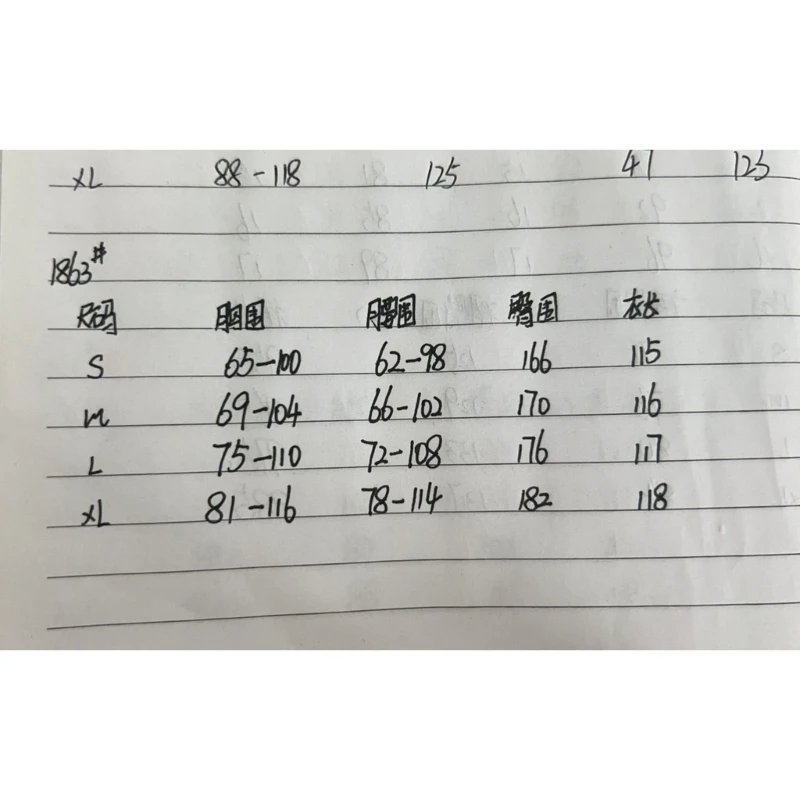 XL 88-118 125 47 123
1863#
尺码 胸围 腰围 臀围 衣长
S 65-100 62-98 166 115
M 69-104 66-102 170 116
L 75-110 72-108 176 117
XL 81-116 78-114 182 118